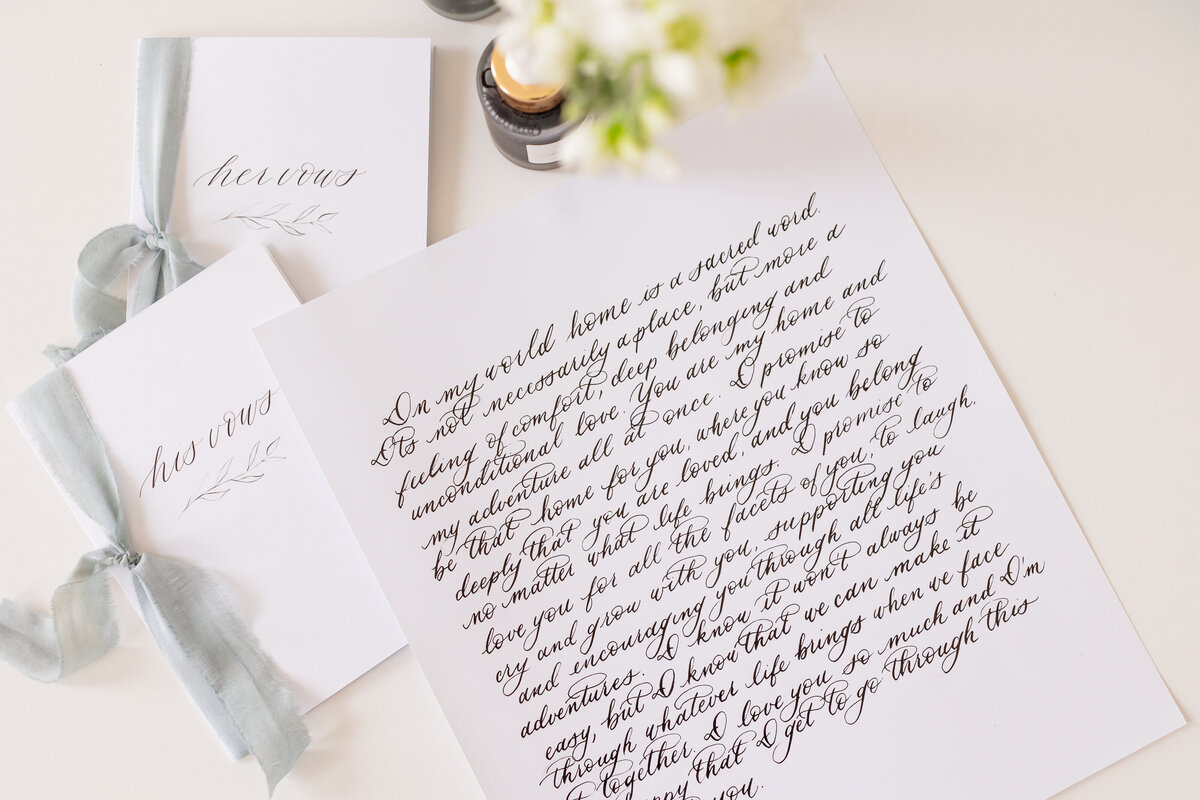 her vows
his vows
In my world home is a sacred word.
Its not necessarily a place, but more a
feeling of comfort, deep belonging and
unconditional love. You are my home and
my adventure all at once. I promise to
be that home for you, where you know so
deeply that you are loved, and you belong
no matter what life brings. I promise to
love you for all the facets of you, to laugh,
cry and grow with you, supporting you
and encouraging you through all life's
adventures. I know it won't always be
easy, but I know that we can make it
through whatever life brings when we face
it together. I love you so much and I'm
that I get to go through this
you.